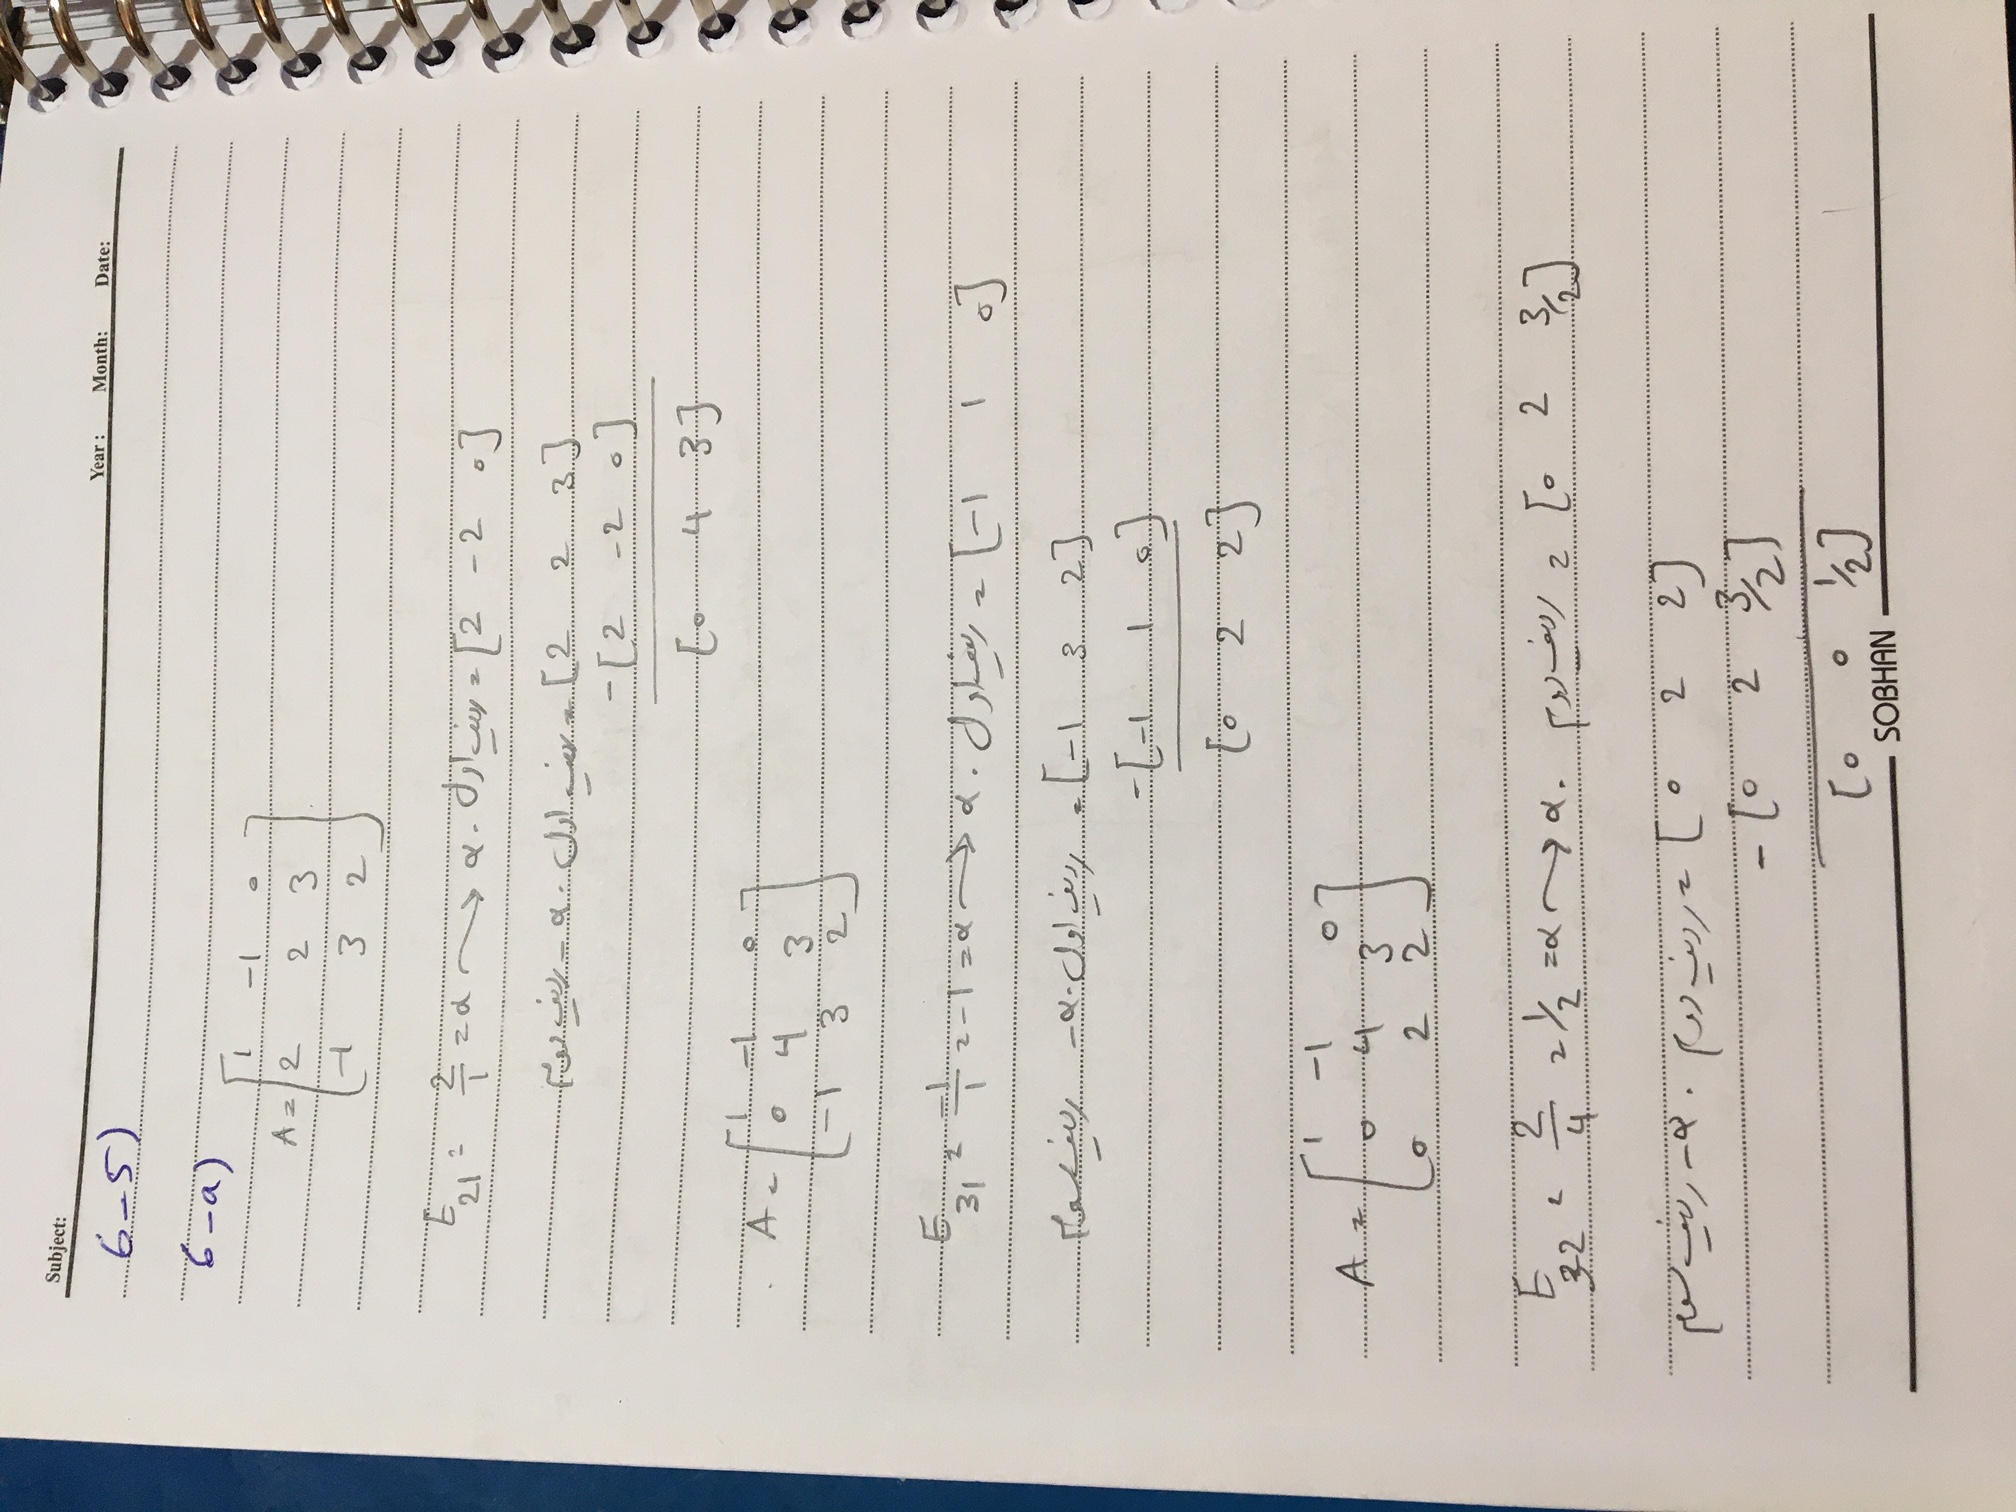 Subject:
Year : Month: Date:
6-5)
6-a)
1 -1 0
A = 2 2 3
-1 3 2
E21 = 2/1 = α → α . ردیف اول = [2 -2 0]
ردیف دوم - α . ردیف اول = [2 2 3]
-[2 -2 0]
[0 4 3]
1 -1 0
A = 0 4 3
-1 3 2
E31 = -1/1 = -1 = α → α . ردیف اول = [-1 1 0]
ردیف سوم - α . ردیف اول = [-1 3 2]
-[-1 1 0]
[0 2 2]
1 -1 0
A = 0 4 3
0 2 2
E32 = 2/4 = 1/2 = α → α . ردیف دوم = [0 2 3/2]
ردیف سوم - α . ردیف دوم = [0 2 2]
-[0 2 3/2]
[0 0 1/2]
SOBHAN